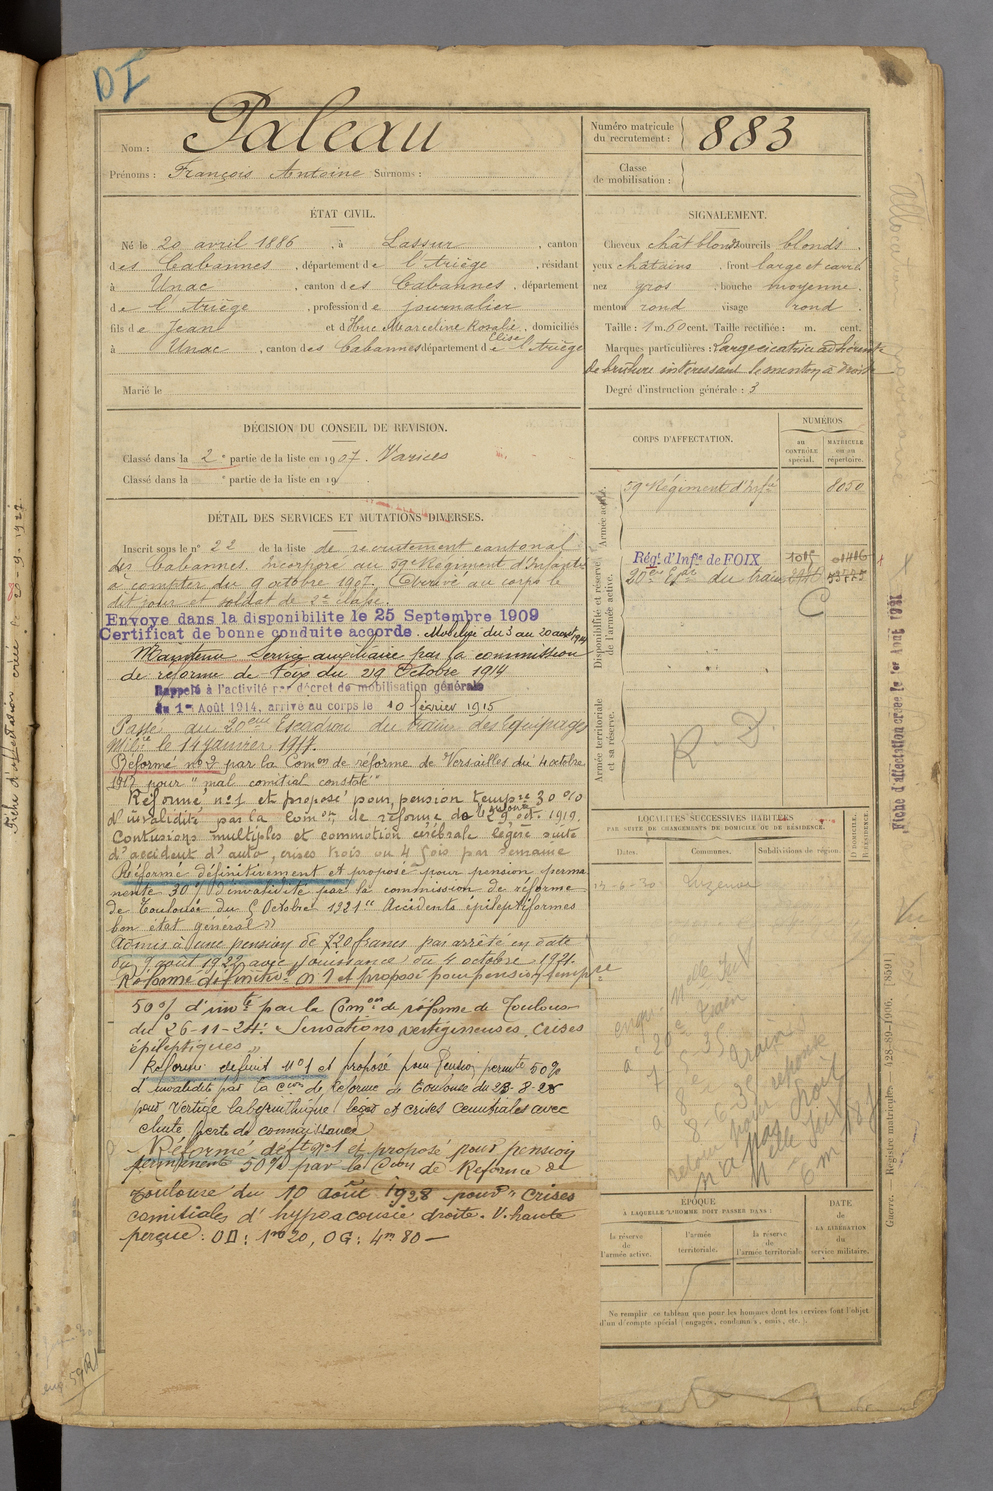 DI
Nom : Paleau
Prénoms : François Antoine Surnoms :
Numéro matricule
du recrutement : 883
Classe
de mobilisation :
ÉTAT CIVIL.
Né le 20 avril 1886 , à Lassur , canton
des Cabannes , département de l'Ariège , résidant
à Unac , canton des Cabannes , département
de l'Ariège , profession de journalier
fils de Jean et d Huc Marceline Rosalie Elise , domiciliés
à Unac , canton des Cabannes département de l'Ariège
Marié le
SIGNALEMENT.
Cheveux chât blonds sourcils blonds .
yeux châtains , front large et carré
nez gros , bouche moyenne .
menton rond visage rond .
Taille : 1 m. 60 cent. Taille rectifiée : m. cent.
Marques particulières : Large cicatrice adhérente
de brûlure intéressant le menton à droite
Degré d'instruction générale : 3
DÉCISION DU CONSEIL DE RÉVISION.
Classé dans la 2e partie de la liste en 1907. Varices
Classé dans la e partie de la liste en 19
DÉTAIL DES SERVICES ET MUTATIONS DIVERSES.
Inscrit sous le n° 22 de la liste de recrutement cantonal
des Cabannes. Incorporé au 59e Régiment d'Infanterie
à compter du 9 octobre 1907. Arrivé au corps le
dit jour et soldat de 2e classe.
Envoyé dans la disponibilité le 25 Septembre 1909
Certificat de bonne conduite accordé. Mobilisé du 3 au 20 août 1914
Maintenu Service auxiliaire par la commission
de réforme de Foix du 29 Octobre 1914
Rappelé à l'activité par décret de mobilisation générale
du 1er Août 1914, arrivé au corps le 10 février 1915
Passé au 20eme Escadron du train des Equipages
Mil.re le 14 janvier 1917.
Réformé n° 2 par la Comon de réforme de Versailles du 4 octobre
1917 pour "mal comitial constaté"
Réformé n° 1 et proposé pour pension tempre 30 %
d'invalidité par la Comon de réforme de Toulouse 9 oct. 1919.
Contusions multiples et commotion cérébrale légère suite
d'accident d'auto, crises trois ou 4 fois par semaine
Réformé définitivement et proposé pour pension perma
nente 30 % d'invalidité par la commission de réforme
de Toulouse du 5 Octobre 1921 "Accidents épileptiformes
bon état général"
Admis à une pension de 720 francs par arrêté en date
du 9 août 1922 avec jouissance du 4 octobre 1921.
Réformé définitivt n° 1 et proposé pour pension tempre
50 % d'invté par la Comon de réforme de Toulouse
du 26-11-24: Sensations vertigineuses, crises
épileptiques "
Réformé définit n° 1 et proposé pour Pension permte 50 %
d'invalidité par la Cion de Réforme de Toulouse du 28-8-28
pour Vertige labyrinthique léger et crises comitiales avec
chute perte de connaissance
Réformé deft n° 1 et proposé pour pension
permanente 50 % par la Cion de Réforme de
Toulouse du 10 août 1928 pour "Crises
comitiales d'hypoacousie droite. V. haute
perçue : OD : 1m20, OG : 4m 80 —
CORPS D'AFFECTATION.
NUMÉROS
au
CONTRÔLE
spécial.
MATRICULE
ou au
répertoire.
Armée active.
59e Régiment d'Infie 8050
Disponibilité et réserve
de l'armée active.
Régt d'Infie de FOIX 1015 01486
20eme Esc du train
C
Armée territoriale
et sa réserve.
R. D.
LOCALITÉS SUCCESSIVES HABITÉES
PAR SUITE DE CHANGEMENTS DE DOMICILE OU DE RÉSIDENCE.
Dates.
Communes.
Subdivisions de région.
D DOMICILE.
R RÉSIDENCE.
14-6-30 Luzenac
ÉPOQUE
À LAQUELLE L'HOMME DOIT PASSER DANS :
la réserve
de
l'armée active.
l'armée
territoriale.
la réserve
de
l'armée territoriale
DATE
de
LA LIBÉRATION
du
service militaire.
Ne remplir ce tableau que pour les hommes dont les services font l'objet
d'un décompte spécial (engagés, condamnés, omis, etc.).
Guerre. — Registre matricule. — 428-89-1906. [8591]
Fiche d'affectation créée le 1er Août 1921
Fiche d'affectation créée le 2-9-1927